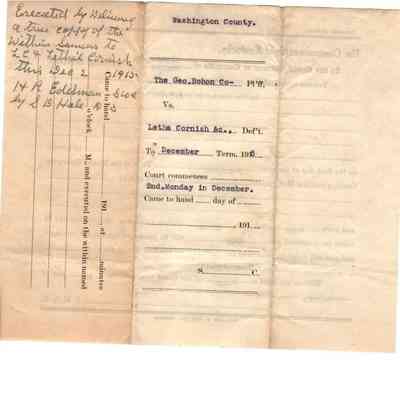 Executed by Delivering
a true copy of the
Within Sumons to
L.C. & Letha Cornish
this Dec 2 1915
H R Edelman
by S B Hale D S
Came to hand 191 at minutes
o'clock M., and executed on the within named
Washington County.
The Geo. Bohon Co- Pl'ff,
Vs.
Letha Cornish &c., Def't.
To December Term. 1915
Court commences
2nd. Monday in December.
Came to hand day of
, 191
S. C.